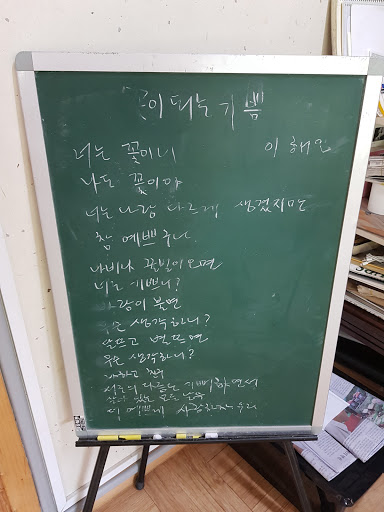 꽃이 되는 기쁨
이해인
너는 꽃이니
나도 꽃이야
너는 나랑 다르게 생겼지만
참 예쁘구나
나비나 꿀벌이 오면
너는 기쁘니?
바람이 불면
무슨 생각하니?
달뜨고 별뜨면
무슨 생각하니?
서로의 다름을 기뻐하면서
더 예쁘게 사랑하자 우리